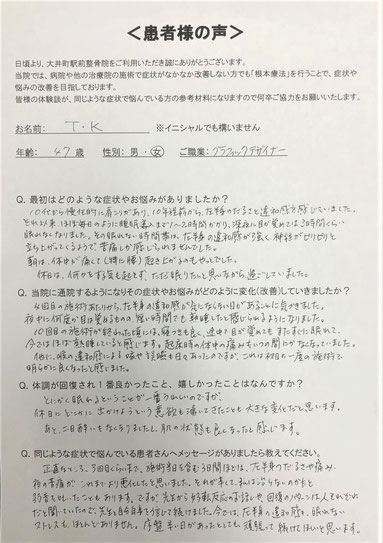 ＜患者様の声＞
日頃より、大井町駅前整骨院をご利用いただき誠にありがとうございます。
当院では、病院や他の治療院の施術で症状がなかなか改善しない方でも「根本療法」を行うことで、症状や
悩みの改善を目指しております。
皆様の体験談が、同じような症状で悩んでいる方の参考材料になりますので何卒ご協力をお願いいたします。
お名前： T・K ※イニシャルでも構いません
年齢： 47 歳 性別：男・女 ご職業：グラフィックデザイナー
Q. 最初はどのような症状やお悩みがありましたか？
10代から慢性的に肩こりがあり、10年程前から、左半身のだるさと違和感を感じていました。
それ以来ほぼ毎日のように睡眠導入まで1〜2時間かかり、深夜に目が覚めては3時間くらい
眠れなくなりました。その眠れない時間帯は、左半身の違和感が強く神経がピリピリと
立ち上がってくるようで、苦痛しか感じられませんでした。
朝は、体中が痛くて（特に腰）起き上がるのもやっとでした。
休日は、何かをする気も起きず、ただ眠りたいと思いながら過ごしていました。
Q. 当院に通院するようになりその症状やお悩みがどのように変化（改善）していきましたか？
4回目の施術あたりから、左半身の違和感が気にならない日があることに気付きました。
夜中に何度か目が覚めるものの短い時間でも熟睡したと感じられるようになりました。
10回目の施術が終わった頃には、寝つきも良く、途中で目が覚めてもまたすぐに眠れて、
今ではほぼ熟睡していると感じます。起床時の体中の痛みもいつの間にかなくなっていました。
他に、喉の違和感による咳や吐き気も日々あったのですが、これは初日の一度の施術で
明らかに良くなったと感じました。
Q. 体調が回復され１番良かったこと、嬉しかったことはなんですか？
とにかく眠れるということが一番うれしいのですが、
休日にどこかに出かけようという意欲も湧いてきたことも大きな変化だと思います。
あと、二日酔いもなくなりましたし、肌の状態も良くなったと感じます。
Q. 同じような症状で悩んでいる患者さんへメッセージがありましたら教えてください。
正直なところ、3回目くらいまで、施術当日を含む3日間ほどは、左半身のだるさや痛み、
夜の苦痛が、これまでより悪化したと思いました。それが辛くて、私には合わないのかもと
弱音を吐いたこともあります。ですが、先生から好転反応のお話や、回復のパターンは人それぞれ
だと聞いていたので、先生と自分自身を信じて続けました。今では、左半身の違和感、眠れない
ストレスも、ほとんどありません。序盤辛い日があったとしても、頑張って続けてほしいと思います。